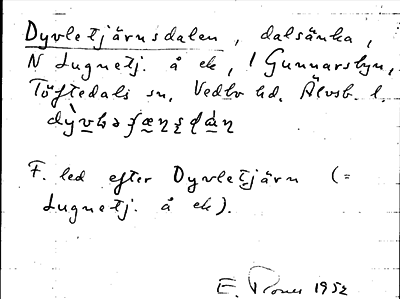 Dyvletjärnsdalen, dalsänka,
N Lugnetj. å ek, 1 Gunnarsbyn,
Töftedals sn, Vedbo hd. Älvsb. l.
F. led efter Dyvletjärn (=
Lugnetj. å ek).
E. 1952